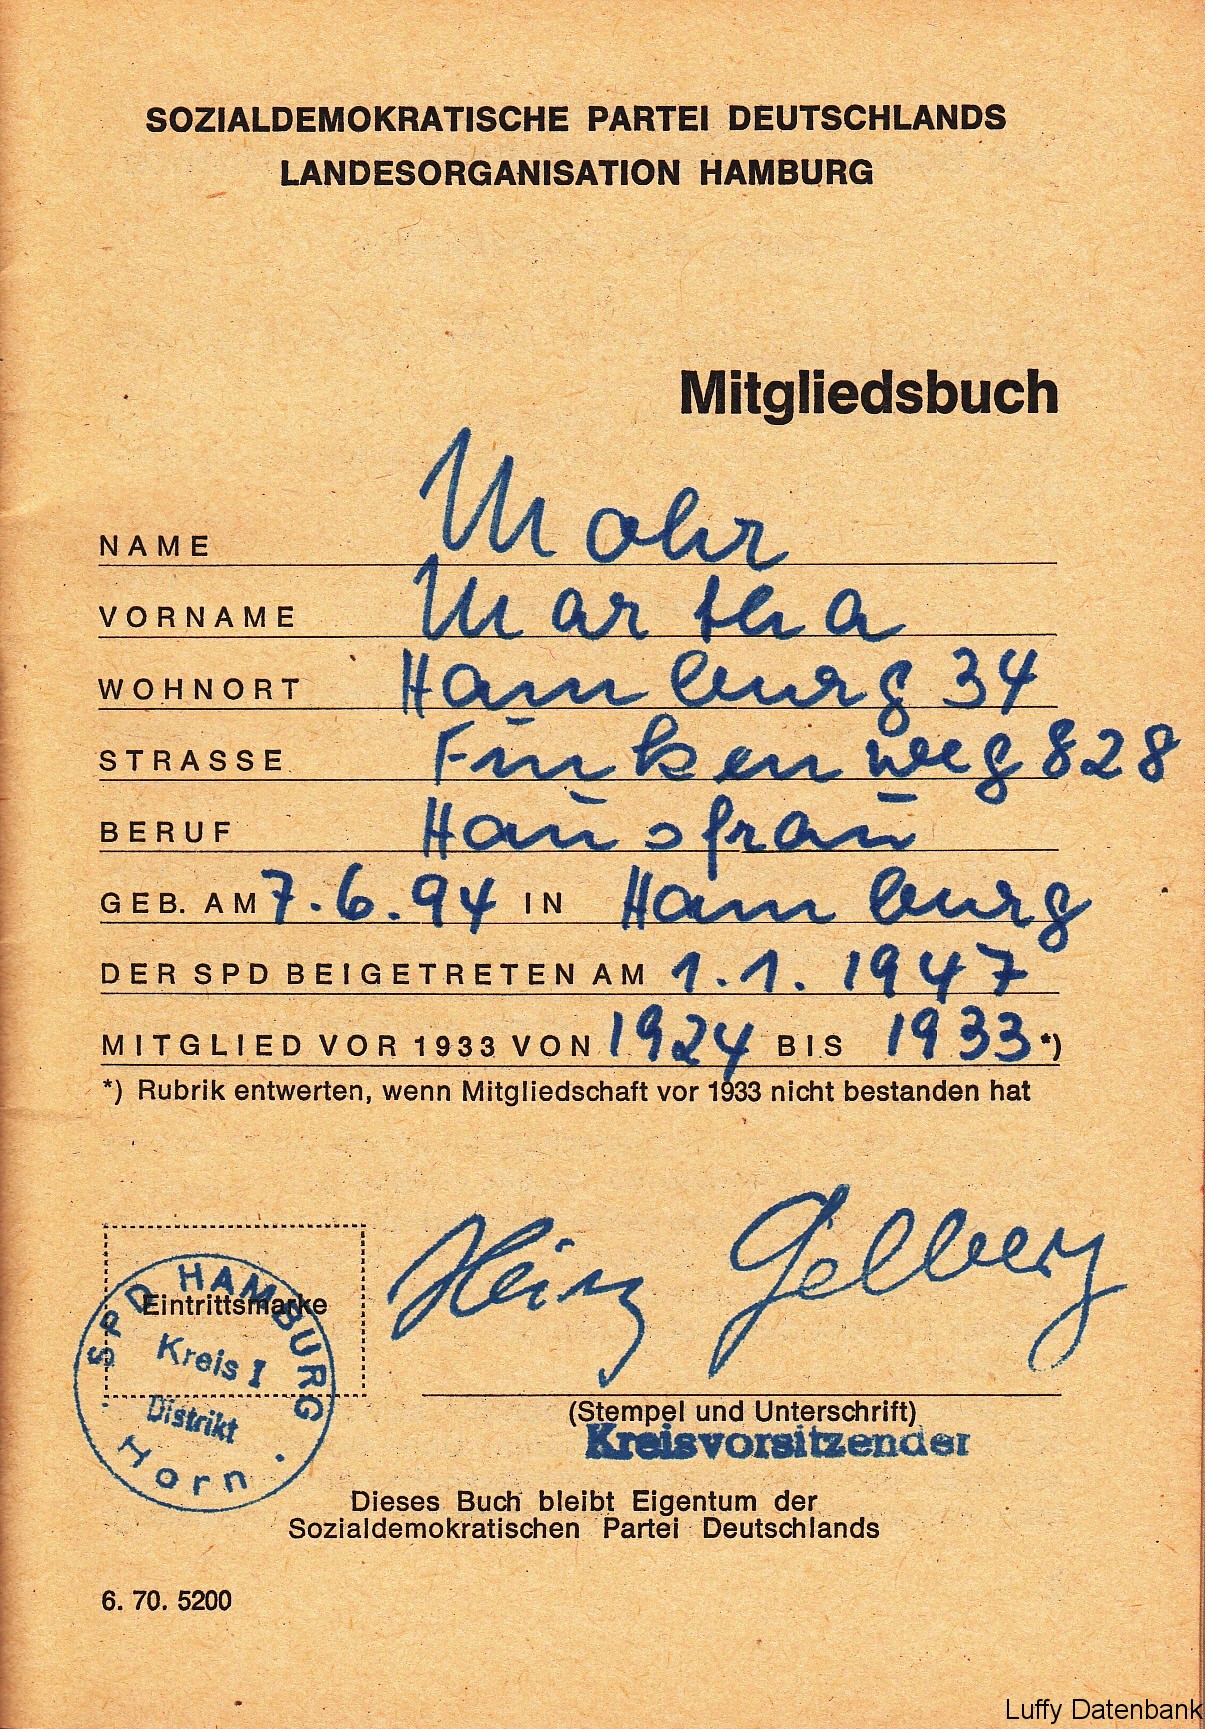 SOZIALDEMOKRATISCHE PARTEI DEUTSCHLANDS
LANDESORGANISATION HAMBURG
Mitgliedsbuch
NAME Mohr
VORNAME Martha
WOHNORT Hamburg 34
STRASSE Finkenweg 828
BERUF Hausfrau
GEB. AM 7.6.94 IN Hamburg
DER SPD BEIGETRETEN AM 1.1.1947
MITGLIED VOR 1933 VON 1924 BIS 1933 *)
*) Rubrik entwerten, wenn Mitgliedschaft vor 1933 nicht bestanden hat
Eintrittsmarke
SPD HAMBURG
Kreis I
Distrikt
Horn
Heinz Gelberg
(Stempel und Unterschrift)
Kreisvorsitzender
Dieses Buch bleibt Eigentum der
Sozialdemokratischen Partei Deutschlands
6. 70. 5200
Luffy Datenbank